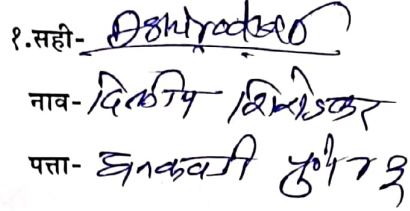 १.सही-
नाव- दिलीप शिरोडकर
पत्ता- धनकवडी पुणे ४३